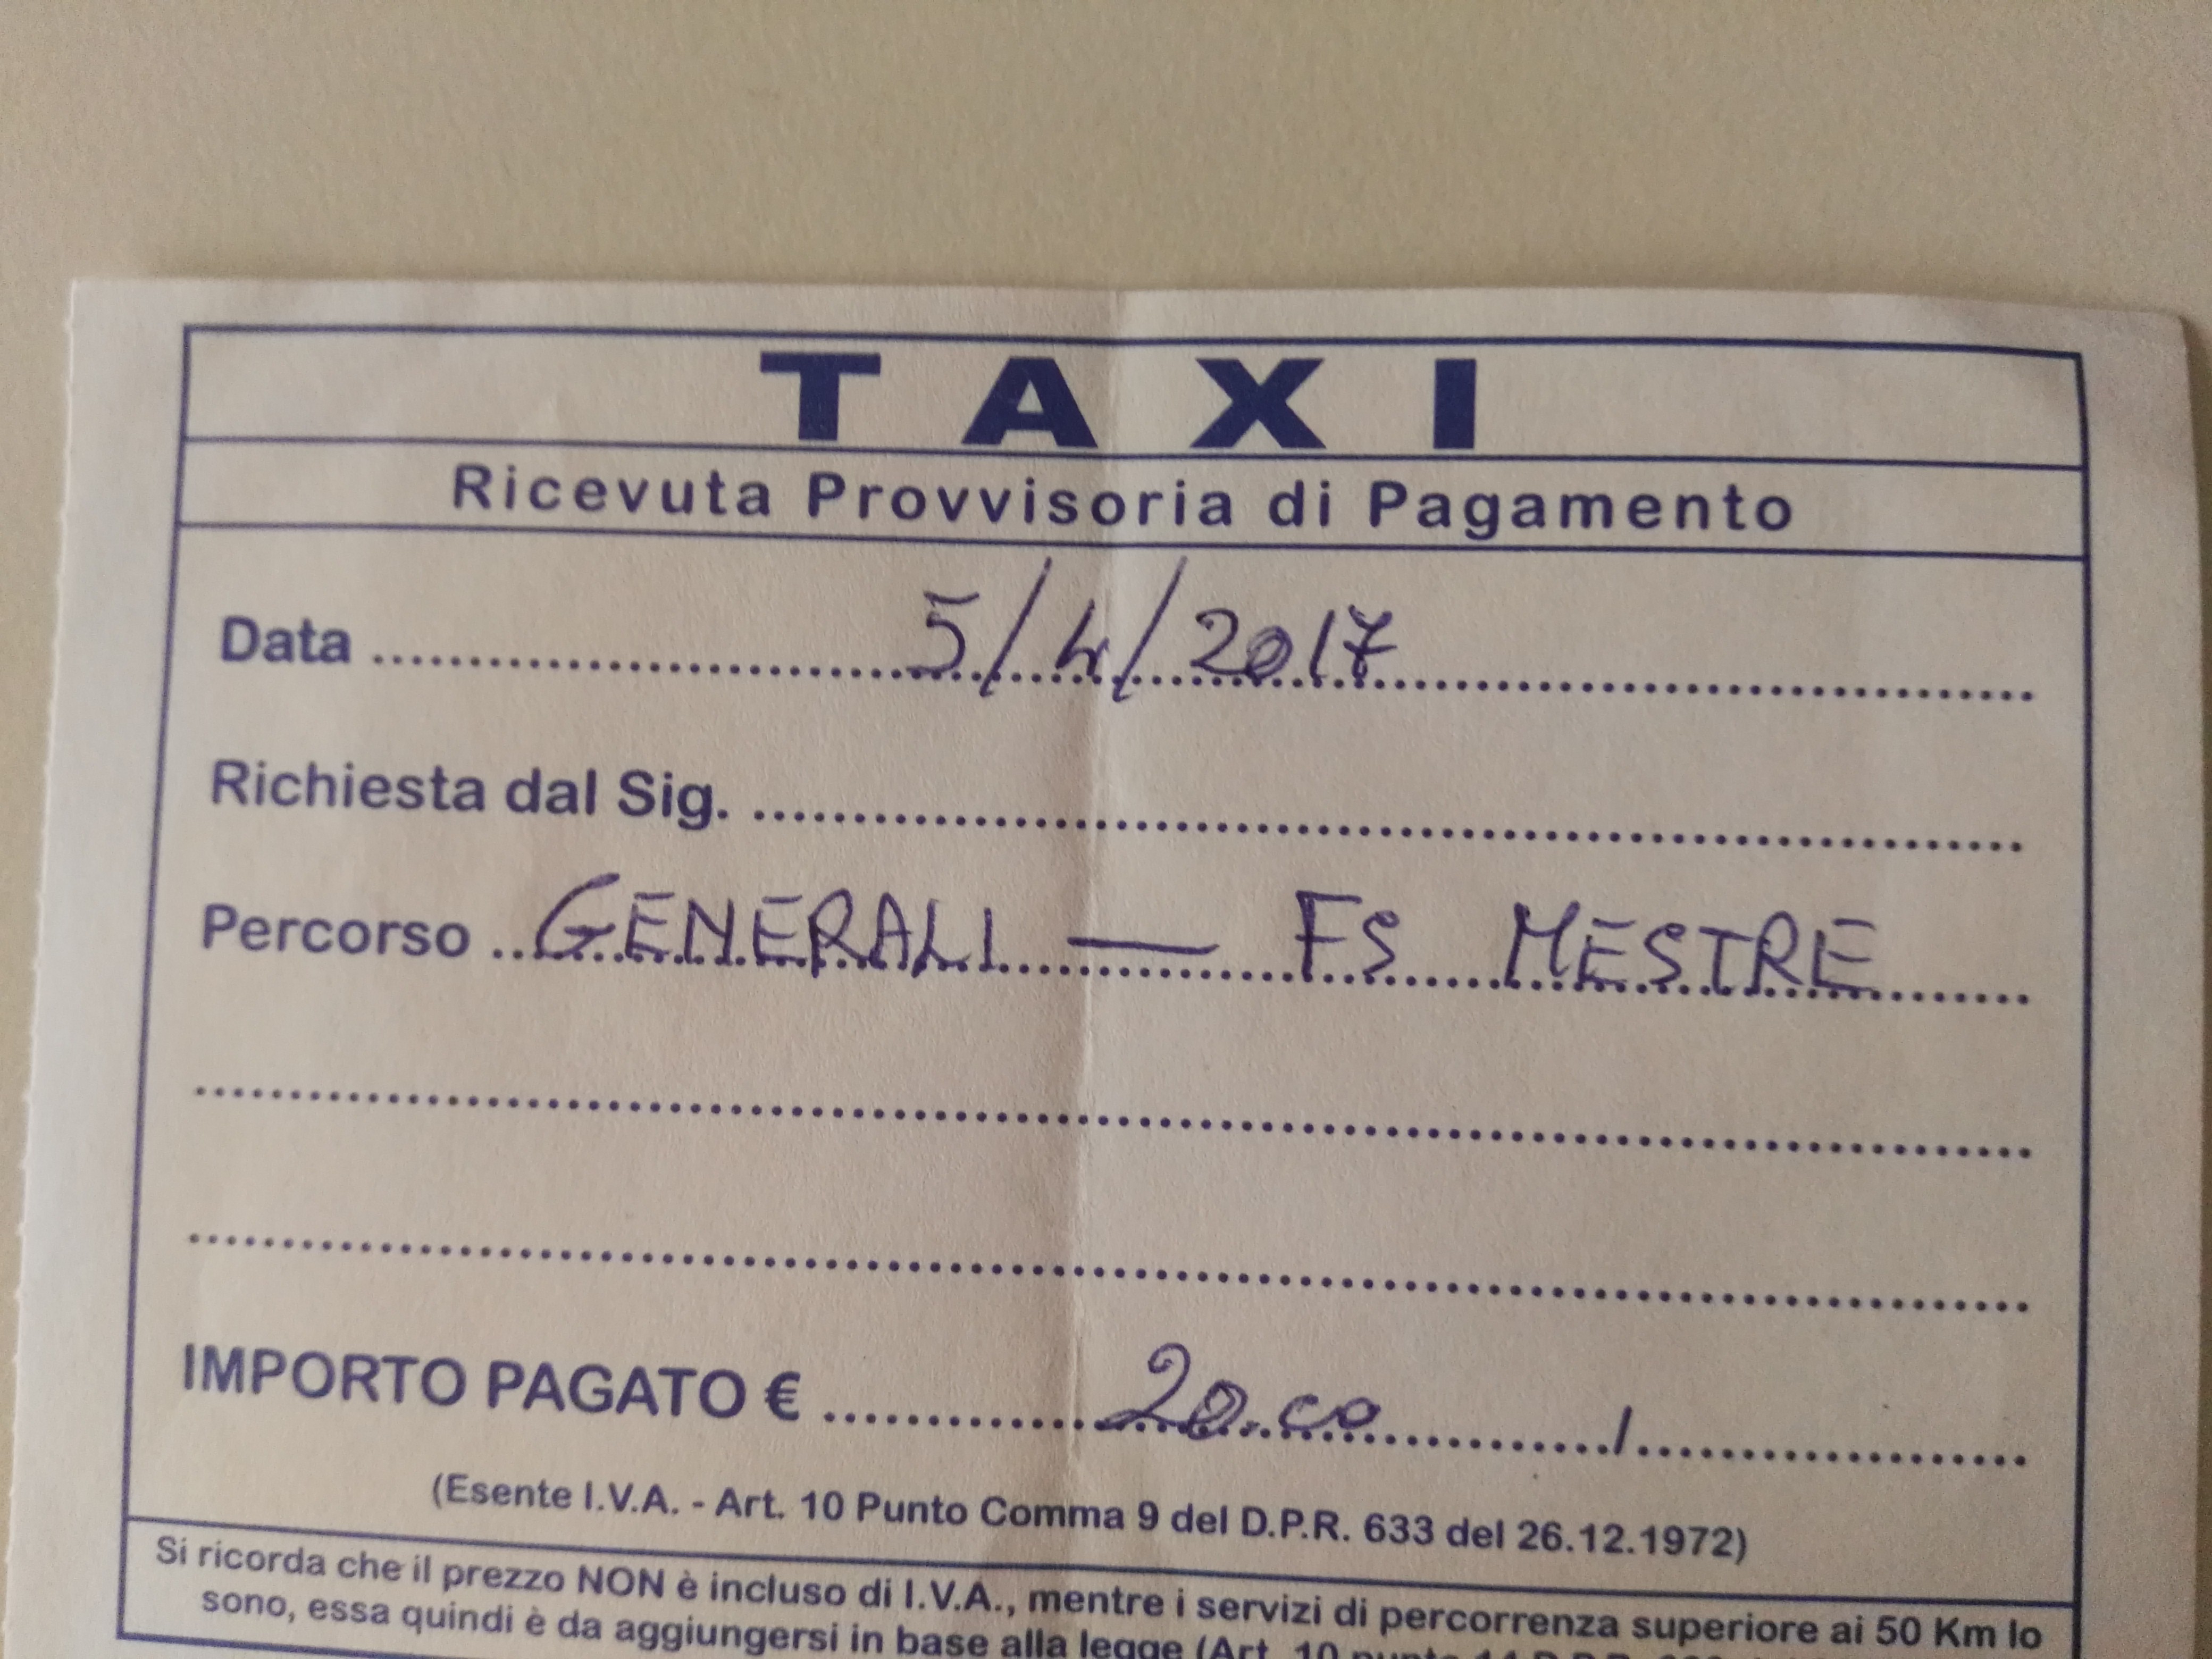 TAXI
Ricevuta Provvisoria di Pagamento
Data 5/4/2017
Richiesta dal Sig.
Percorso GENERALI — FS MESTRE
IMPORTO PAGATO € 20.00 /
(Esente I.V.A. - Art. 10 Punto Comma 9 del D.P.R. 633 del 26.12.1972)
Si ricorda che il prezzo NON è incluso di I.V.A., mentre i servizi di percorrenza superiore ai 50 Km lo
sono, essa quindi è da aggiungersi in base alla legge (Art. 10 punto 14 D.P.R. 633